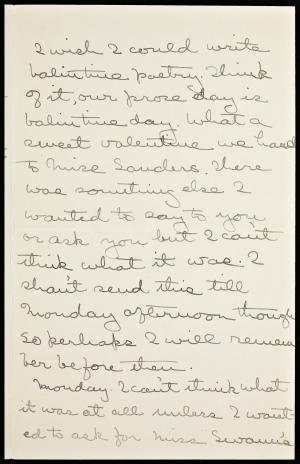 I wish I could write
valintine poetry. Think
of it, our prose day is
valintine day. What a
sweet valentine we hand
to Miss Sanders. There
was something else I
wanted to say to you
or ask you but I can't
think what it was. I
shan't send this till
Monday afternoon though
so perhaps I will remem
ber before then.
Monday. I can't think what
it was at all unless I want
ed to ask for Miss Swann's